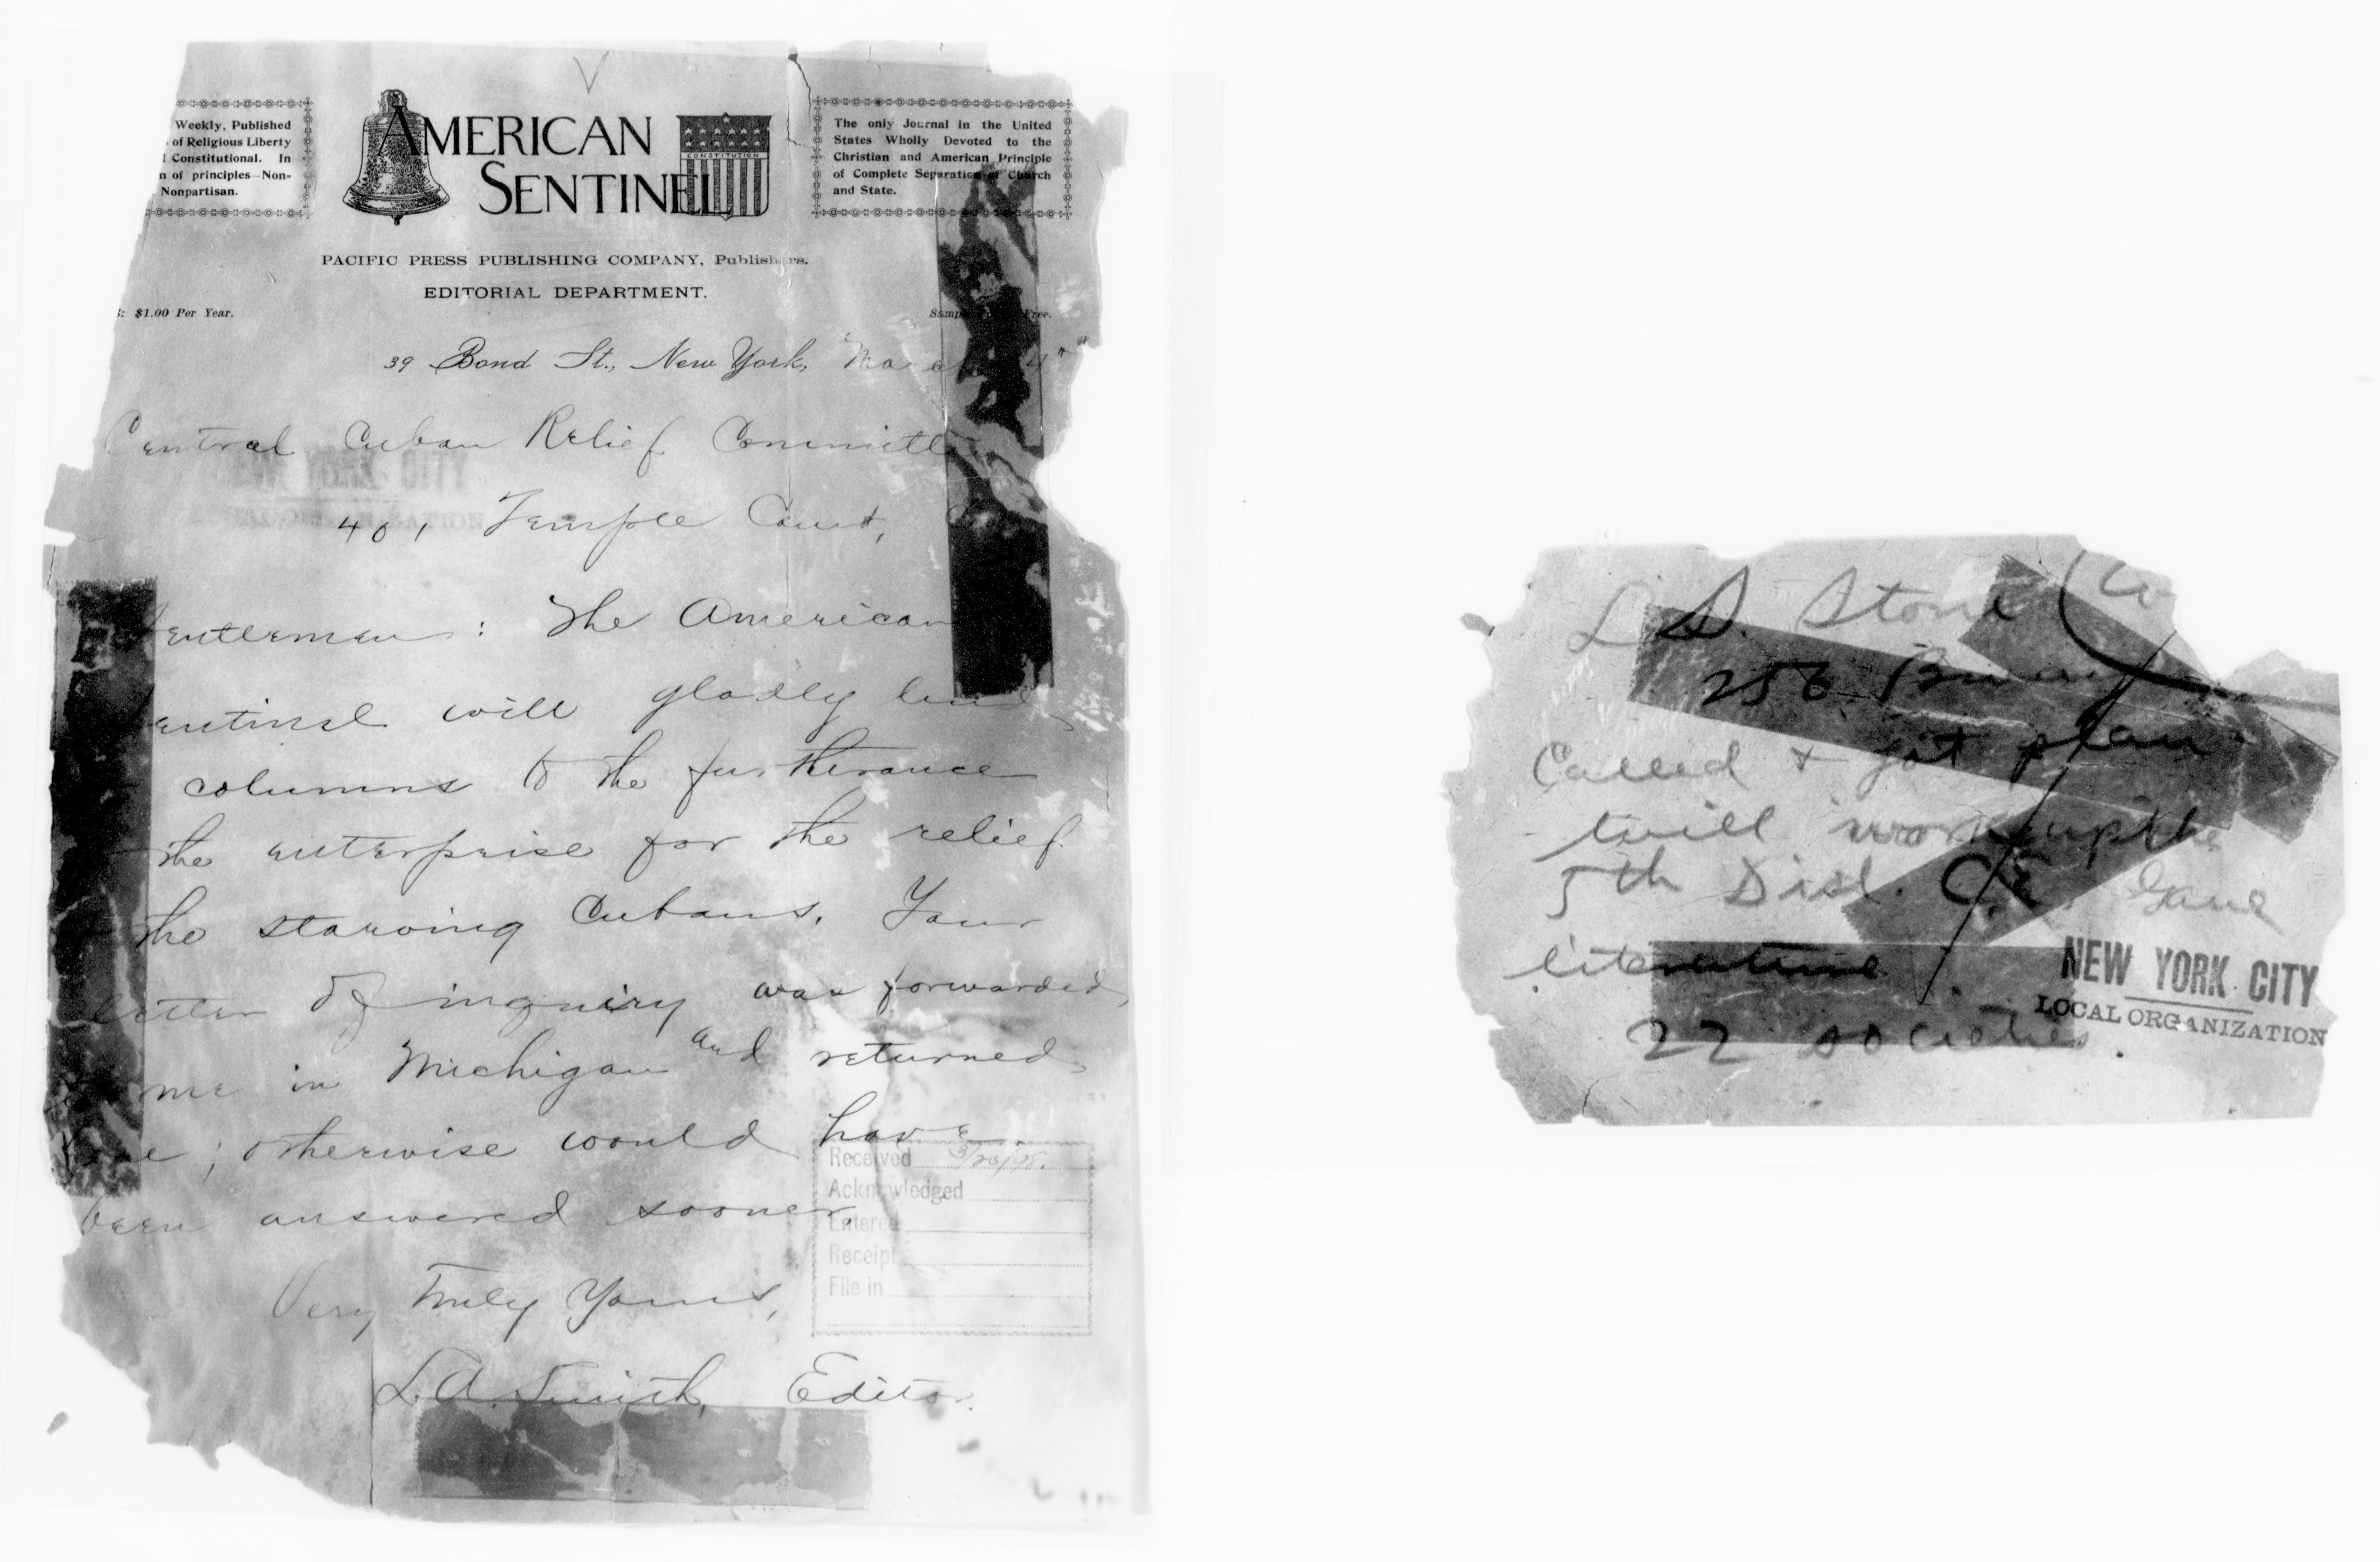 Weekly, Published
of Religious Liberty
Constitutional. In
n of principles—Non-
Nonpartisan.
AMERICAN
SENTINEL
CONSTITUTION
The only Journal in the United
States Wholly Devoted to the
Christian and American Principle
of Complete Separation of Church
and State.
PACIFIC PRESS PUBLISHING COMPANY, Publishers.
EDITORIAL DEPARTMENT.
$1.00 Per Year.
Sample Free.
39 Bond St., New York, March 4"
Central Cuban Relief Committee
NEW YORK CITY
LOCAL ORGANIZATION
401 Temple Court,
Gentlemen: The American
Sentinel will gladly lend
columns to the furtherance
the enterprise for the relief
the starving Cubans. Your
letter of inquiry was forwarded
me in Michigan and returned
; otherwise would have
been answered sooner.
Very Truly Yours,
L. A. Smith, Editor.
Received 3/26/98.
Acknowledged
Entered
Receipt
File in
L. S. Stone (
256 Broadway
Called & got plan
will work up the
5th Dist. C.E. Gave
literature
22 societies.
NEW YORK CITY
LOCAL ORGANIZATION